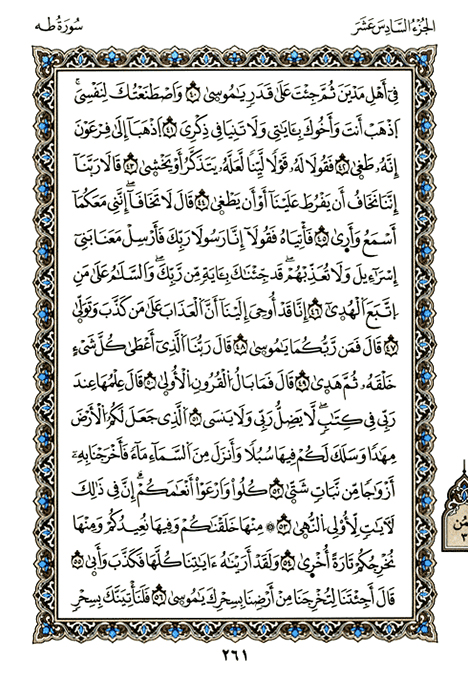 الجُزْءُ السَّادِسَ عَشَرَ
سُورَةُ طه
فِي أَهْلِ مَدْيَنَ ثُمَّ جِئْتَ عَلَىٰ قَدَرٍ يَٰمُوسَىٰ ٤٠ وَاصْطَنَعْتُكَ لِنَفْسِيَ
اَذْهَبْ أَنتَ وَأَخُوكَ بِـَٔايَٰتِي وَلَا تَنِيَا فِي ذِكْرِيَ ٤١ اَذْهَبَا إِلَىٰ فِرْعَوْنَ
إِنَّهُۥ طَغَىٰ ٤٢ فَقُولَا لَهُۥ قَوْلًا لَّيِّنًا لَّعَلَّهُۥ يَتَذَكَّرُ أَوْ يَخْشَىٰ ٤٣ قَالَا رَبَّنَا
إِنَّنَا نَخَافُ أَن يَفْرُطَ عَلَيْنَا أَوْ أَن يَطْغَىٰ ٤٤ قَالَ لَا تَخَافَا إِنَّنِي مَعَكُمَا
أَسْمَعُ وَأَرَىٰ ٤٥ فَأْتِيَاهُ فَقُولَا إِنَّا رَسُولَا رَبِّكَ فَأَرْسِلْ مَعَنَا بَنِي
إِسْرَٰٓءِيلَ وَلَا تُعَذِّبْهُمْ قَدْ جِئْنَٰكَ بِـَٔايَةٍ مِّن رَّبِّكَ وَالسَّلَٰمُ عَلَىٰ مَنِ
اِتَّبَعَ الْهُدَىٰ ٤٦ إِنَّا قَدْ أُوحِيَ إِلَيْنَا أَنَّ الْعَذَابَ عَلَىٰ مَن كَذَّبَ وَتَوَلَّىٰ
٤٧ قَالَ فَمَن رَّبُّكُمَا يَٰمُوسَىٰ ٤٨ قَالَ رَبُّنَا الَّذِي أَعْطَىٰ كُلَّ شَيْءٍ
خَلْقَهُۥ ثُمَّ هَدَىٰ ٤٩ قَالَ فَمَا بَالُ الْقُرُونِ الْأُولَىٰ ٥٠ قَالَ عِلْمُهَا عِندَ
رَبِّي فِي كِتَٰبٍ لَّا يَضِلُّ رَبِّي وَلَا يَنسَى ٥١ الَّذِي جَعَلَ لَكُمُ الْأَرْضَ
مِهَٰدًا وَسَلَكَ لَكُمْ فِيهَا سُبُلًا وَأَنزَلَ مِنَ السَّمَآءِ مَآءً فَأَخْرَجْنَا بِهِۦٓ
أَزْوَٰجًا مِّن نَّبَاتٍ شَتَّىٰ ٥٢ كُلُوا وَارْعَوْا أَنْعَٰمَكُمْ إِنَّ فِي ذَٰلِكَ
لَأٓيَٰتٍ لِّأُوْلِي النُّهَىٰ ٥٣ ۞ مِنْهَا خَلَقْنَٰكُمْ وَفِيهَا نُعِيدُكُمْ وَمِنْهَا
نُخْرِجُكُمْ تَارَةً أُخْرَىٰ ٥٤ وَلَقَدْ أَرَيْنَٰهُ ءَايَٰتِنَا كُلَّهَا فَكَذَّبَ وَأَبَىٰ ٥٥
قَالَ أَجِئْتَنَا لِتُخْرِجَنَا مِنْ أَرْضِنَا بِسِحْرِكَ يَٰمُوسَىٰ ٥٦ فَلَنَأْتِيَنَّكَ بِسِحْرٍ
٢٦١